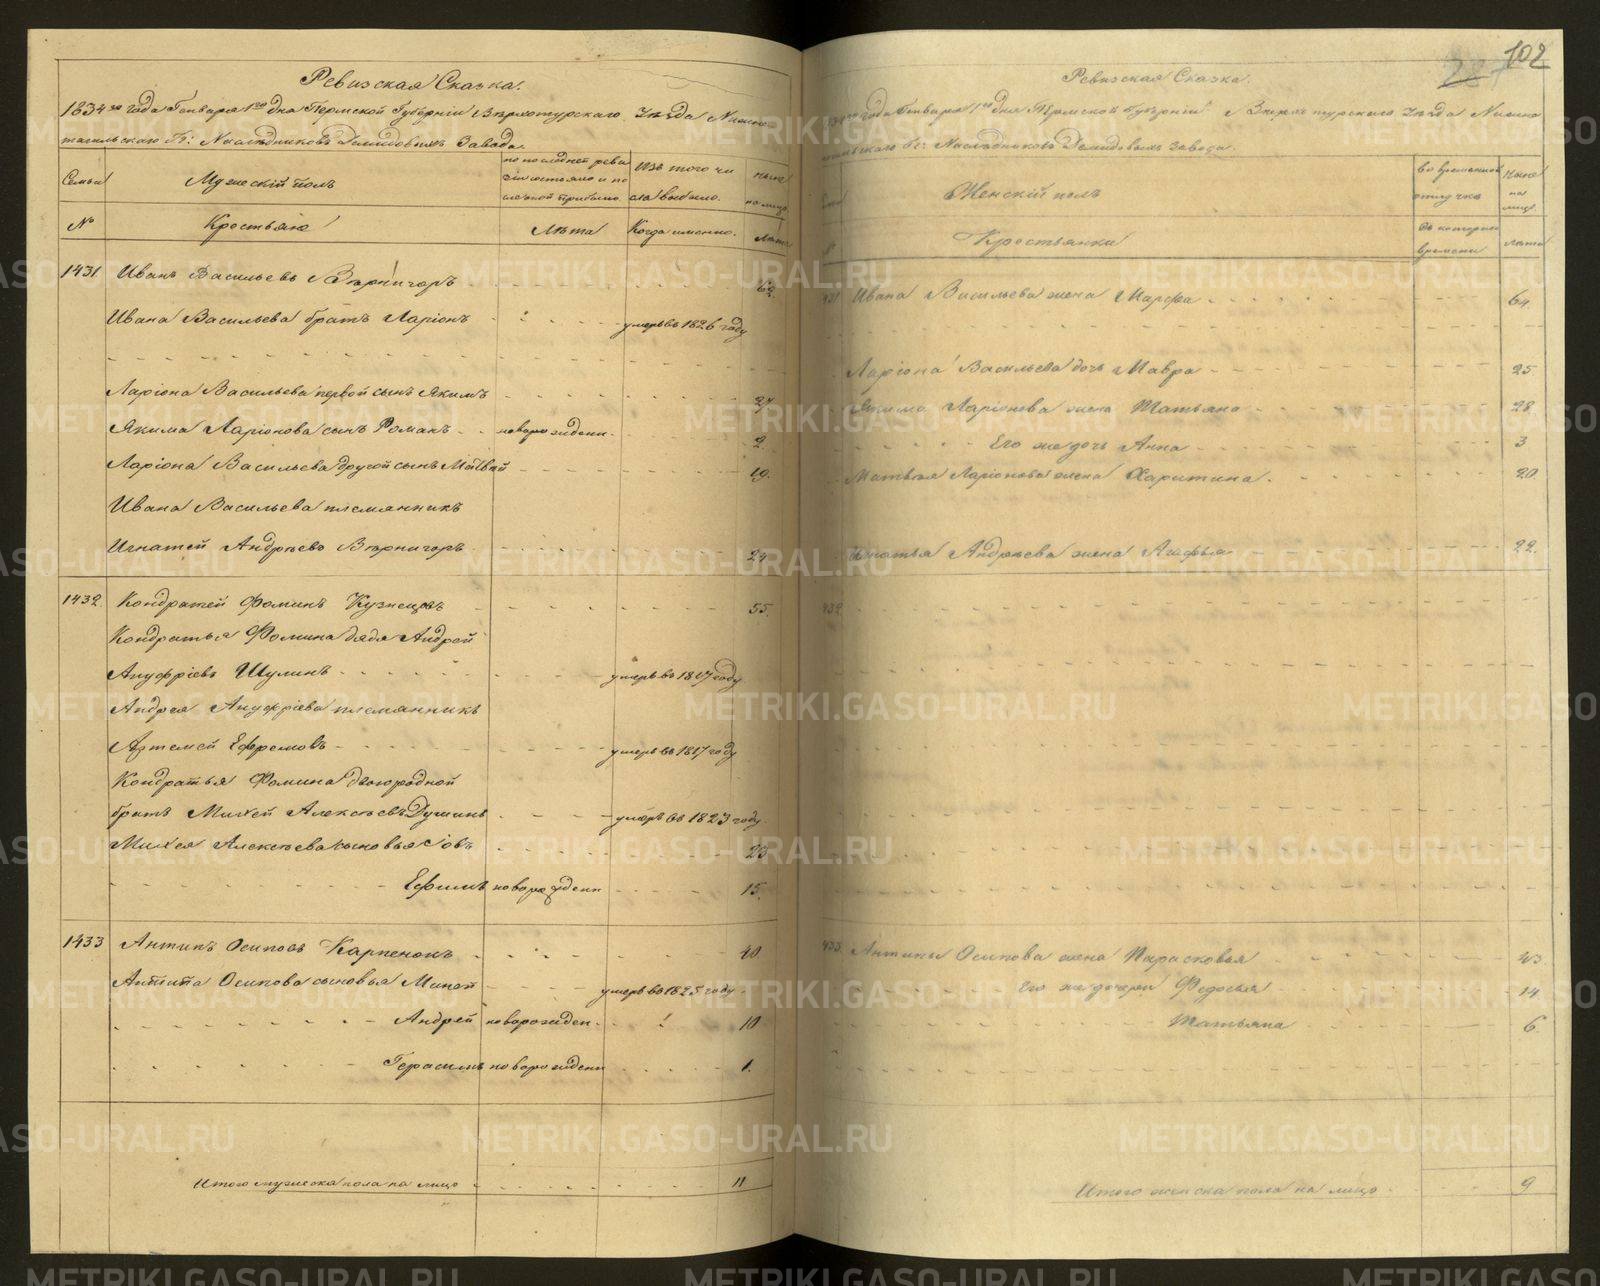 Ревизская Сказка.
1834го года Генваря 1го дня Пермской Губернiи Верхотурскаго Уезда Нижне
тагильскаго Гг: Наследниковъ Демидовыхъ Завода.
Семьи
Мужескiй полъ
по последней реви
зiи состояло и по
слееной прибыло
Изъ того чи
сла выбыло.
ныне
на лицо.
№
Крестьяне
Лета
Когда именно.
Лета
1431. Иванъ Васильевъ 62.
Ивана Васильева братъ Ларiонъ умеръ въ 1826 году
Ларiона Васильева первой сынъ Якимъ 27
Якима Ларiонова сынъ Романъ новорожденн. 2.
Ларiона Васильева другой сынъ Матвей 19.
Ивана Васильева племянникъ
Игнатей Андреевъ 24
1432. Кондратей Фоминъ Кузнецовъ 55.
Кондратья Фомина дядя Андрей
Ануфрiевъ Шулинъ умеръ въ 1817 году
Андрея Ануфрiева племянникъ
Артемей Ефремовъ умеръ въ 1817 году
Кондратья Фомина двоюродной
братъ Михей Алексеевъ умеръ въ 1823 году.
Михея Алексеева сыновья Iовъ 23
Ефимъ новорожденн 15.
1433 Антипъ Осиповъ Карпенокъ 40
Антипа Осипова сыновья Миней умеръ въ 1825 году
Андрей новорожден. 10
Герасимъ новорожденн 1.
Итого мужеска пола на лицо 11
102
Ревизская Сказка.
года Генваря 1го дня Пермской Губернiи Верхотурскаго Уезда Нижне
тагильскаго Гг: Наследниковъ Демидовыхъ завода.
Женскiй полъ
во временной
отлучке
ныне
на
лицо
Крестьянки
Съ котораго
времени
лета
Ивана Васильева жена Марфа 64.
Ларiона Васильева дочь Мавра 25
Якима Ларiонова жена Татьяна 28
Его же дочь Анна 3
Матвея Ларiонова жена Харитина. 20
Игнатья Андреева жена Агафья 22.
432.
433 Антипы Осипова жена Парасковья 43.
Его же дочери Федосья 14
Татьяна 6.
Итого женска пола на лицо 9
METRIKI.GASO-URAL.RU